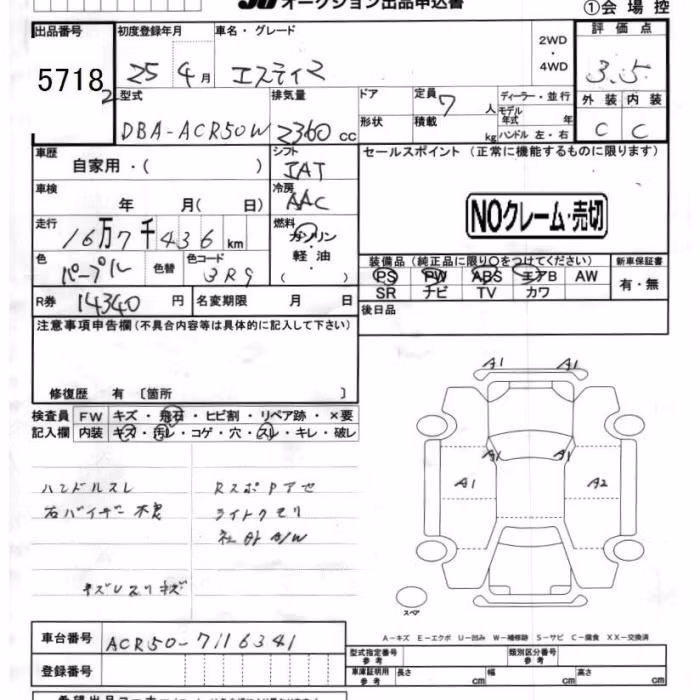 オークション出品申込書
①会場控
出品番号 初度登録年月 車名・グレード 2WD・4WD 評価点
5718 25 4月 エスティマ 3.5
型式 排気量 ドア 定員 7人 ディーラー・並行 外装 内装
DBA-ACR50W 2360cc 形状 積載 kg モデル年式 年 ハンドル 左・右 C C
車歴 自家用・( ) シフト IAT セールスポイント (正常に機能するものに限ります)
車検 年 月( 日) 冷房 AAC
NOクレーム・売切
走行 16万7千436km 燃料 ガソリン・軽油・( )
色 パープル 色替 色コード 3R9
装備品(純正品に限り○をつけてください) 新車保証書
PS PW ABS エアB AW 有・無
SR ナビ TV カワ
R券 14340円 名変期限 月 日 後日品
注意事項申告欄(不具合内容等は具体的に記入して下さい)
修復歴 有 〔箇所 〕
検査員 FW キズ・飛石・ヒビ割・リペア跡・×要
記入欄 内装 キズ・汚レ・コゲ・穴・スレ・キレ・破レ
A1 A1
A1 A1
A1 A2
ハンドルスレ
右バイザー不良
Rスポ
ライトクモリ
社外A/W
キズ スリキズ
スペア
A-キズ E-エクボ U-凹み W-補修跡 S-サビ C-腐食 XX-交換済
車台番号 ACR50-7116341
型式指定番号参考 類別区分番号参考
登録番号 車庫証明用参考 長さ cm 幅 cm 高さ cm